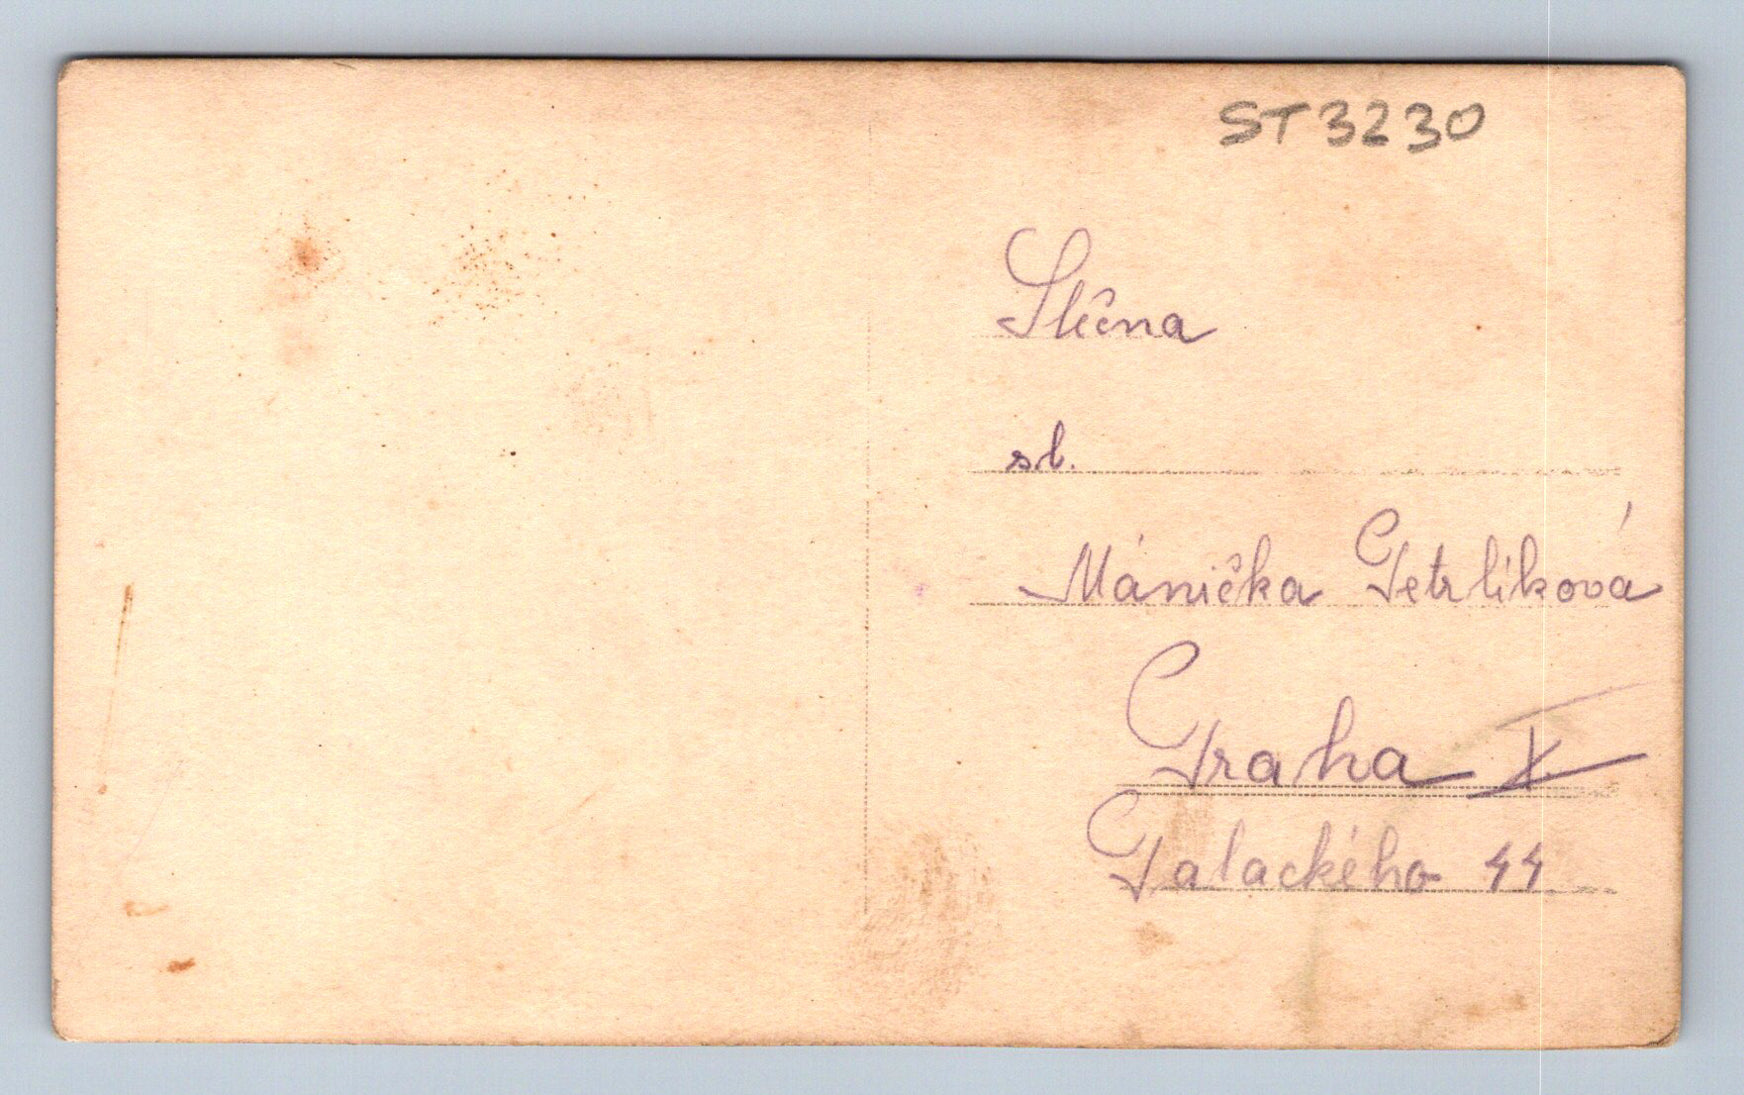 ST3230
Slečna
sl.
Mánička Petrlíková
Praha X.
Palackého 44